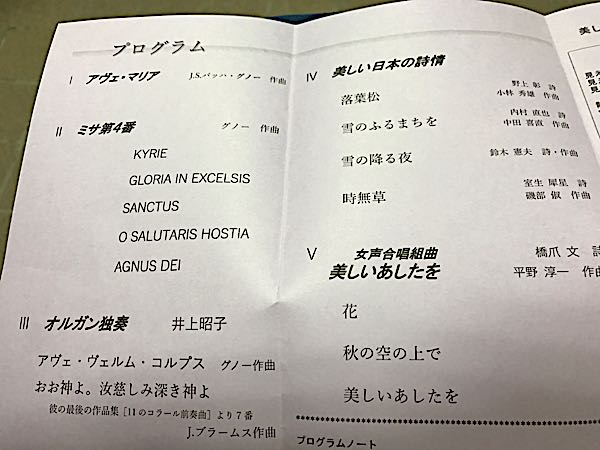 プログラム
I アヴェ・マリア J.S.バッハ・グノー 作曲
II ミサ第4番 グノー 作曲
KYRIE
GLORIA IN EXCELSIS
SANCTUS
O SALUTARIS HOSTIA
AGNUS DEI
III オルガン独奏 井上昭子
アヴェ・ヴェルム・コルプス グノー作曲
おお神よ。汝慈しみ深き神よ
彼の最後の作品集［11のコラール前奏曲］より7番
J.ブラームス作曲
IV 美しい日本の詩情
落葉松 野上 彰 詩
小林 秀雄 作曲
雪のふるまちを 内村 直也 詩
中田 喜直 作曲
雪の降る夜 鈴木 憲夫 詩・作曲
時無草 室生 犀星 詩
磯部 俶 作曲
V 女声合唱組曲
美しいあしたを
橋爪 文 詩
平野 淳一 作曲
花
秋の空の上で
美しいあしたを
プログラムノート
美し
見
見